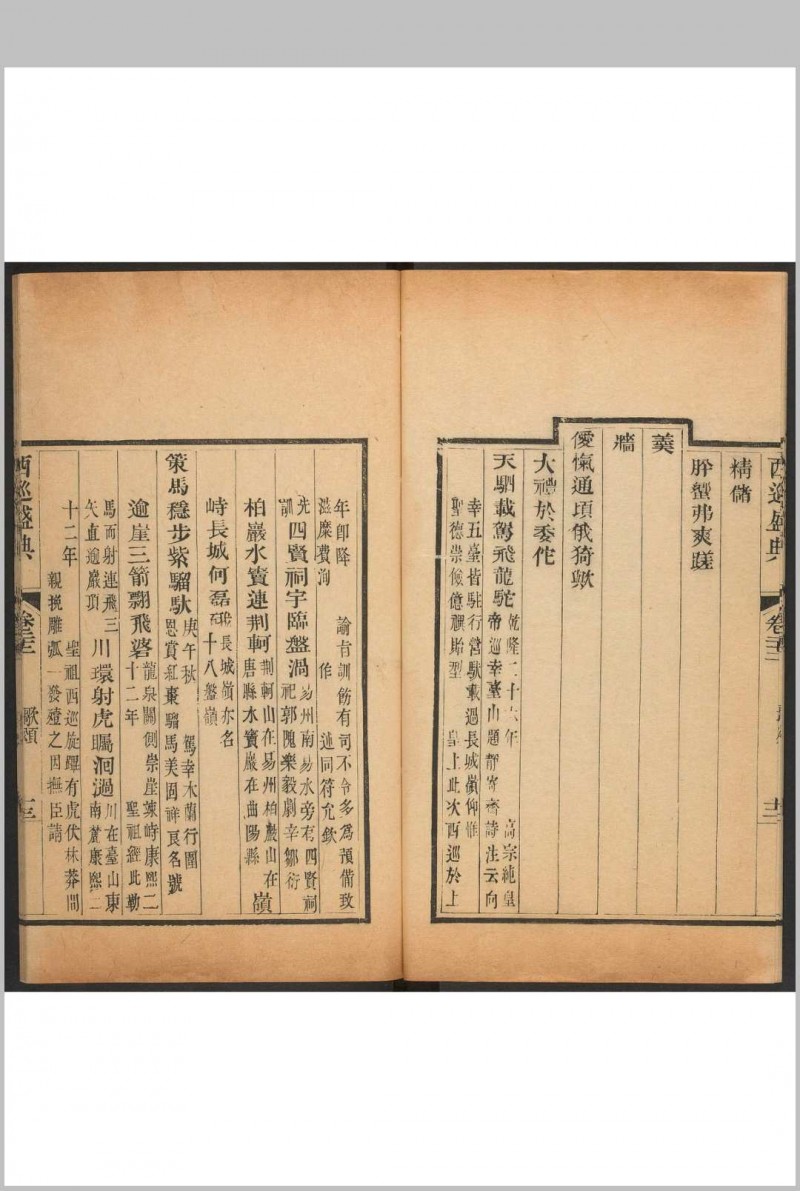 西巡盛典
精儲
肸蠁弗爽蹉
羹
牆
僾愾通頃俄猗歟
大禮於委佗
天駟載駕飛龍駝 乾隆二十六年 高宗純皇
帝巡幸臺山題靜寄齋詩注云向
幸五臺皆駐行營馱載過長城嶺仰惟
聖德崇儉億禩貽型 皇上此次西巡於上
年卽降 諭旨訓飭有司不令多爲預備致
滋糜費洵 作 述同符允欽
光訓 四賢祠宇臨盤渦 易州南易水旁有四賢祠
祀郭隗樂毅劇辛鄒衍
柏巖水竇連荆軻 荆軻山在易州柏巖山在
唐縣水竇巖在曲陽縣 嶺
峙長城何磊砢 長城嶺亦名
十八盤嶺
策馬穩步紫騮馱 庚午秋 駕幸木蘭行圍
恩賞紅棗騮馬美固祥良名號
逾崖三箭翾飛 龍泉關側崇崖竦峙康熙二
十二年 聖祖經此勒
馬而射連飛三
矢直逾巖頂 川環射虎矚洄過 川在臺山東
南麓康熙二
十二年 聖祖西巡旋蹕有虎伏林莽間
親挽雕弧一發殪之因撫臣請
西巡盛典 歌頌 十三